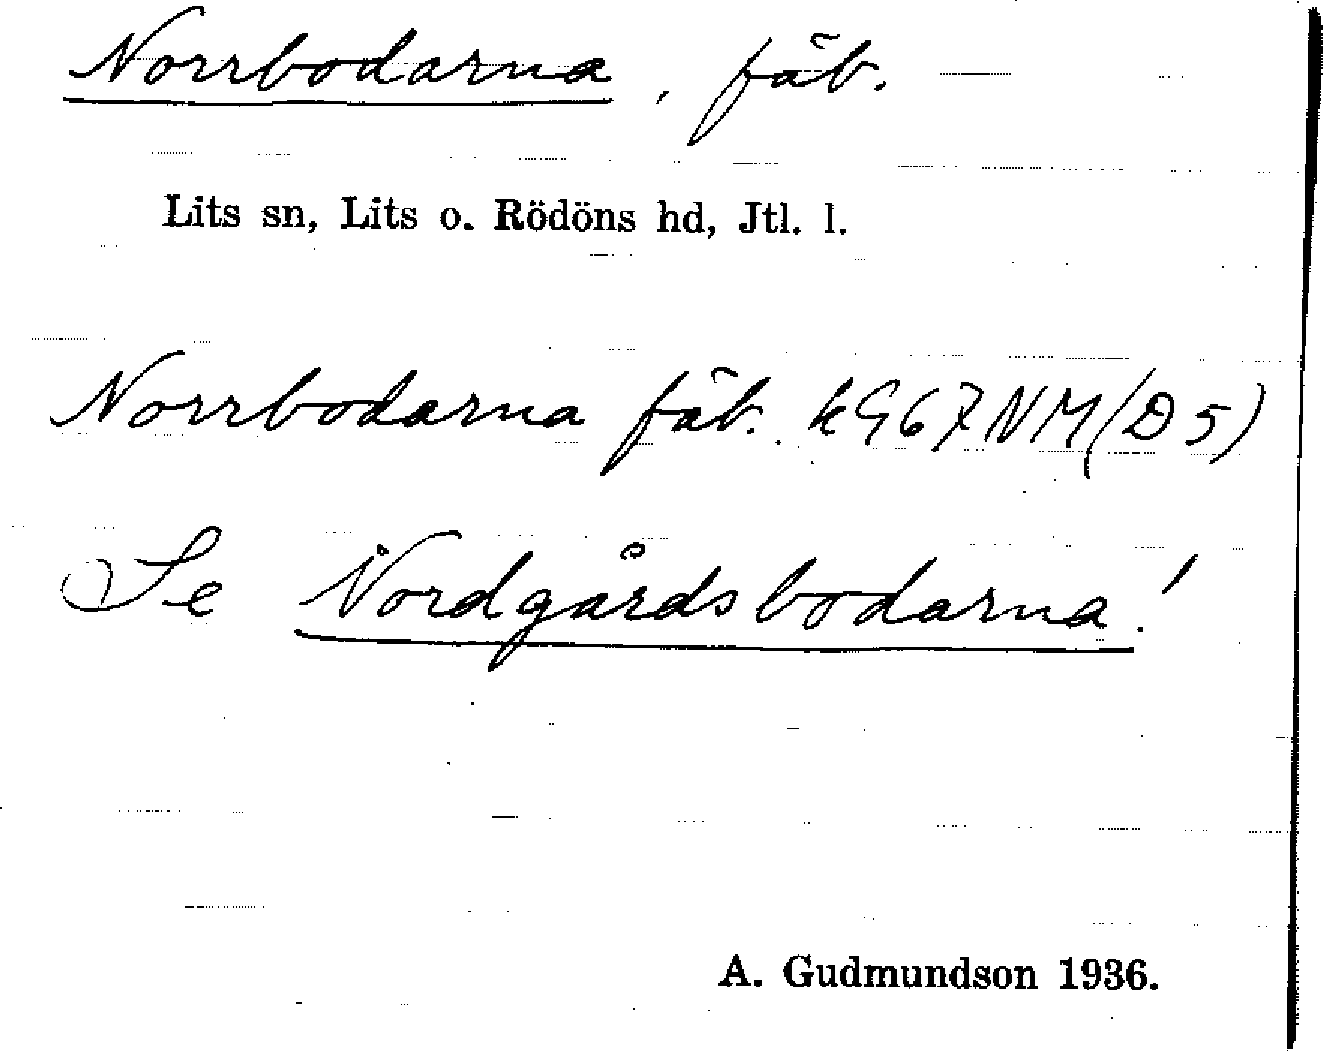 Norrbodarna, fäb.
Lits sn, Lits o. Rödöns hd, Jtl. l.
Norrbodarna fäb. k967NM(D5)
Se Nordgårdsbodarna!
A. Gudmundson 1936.